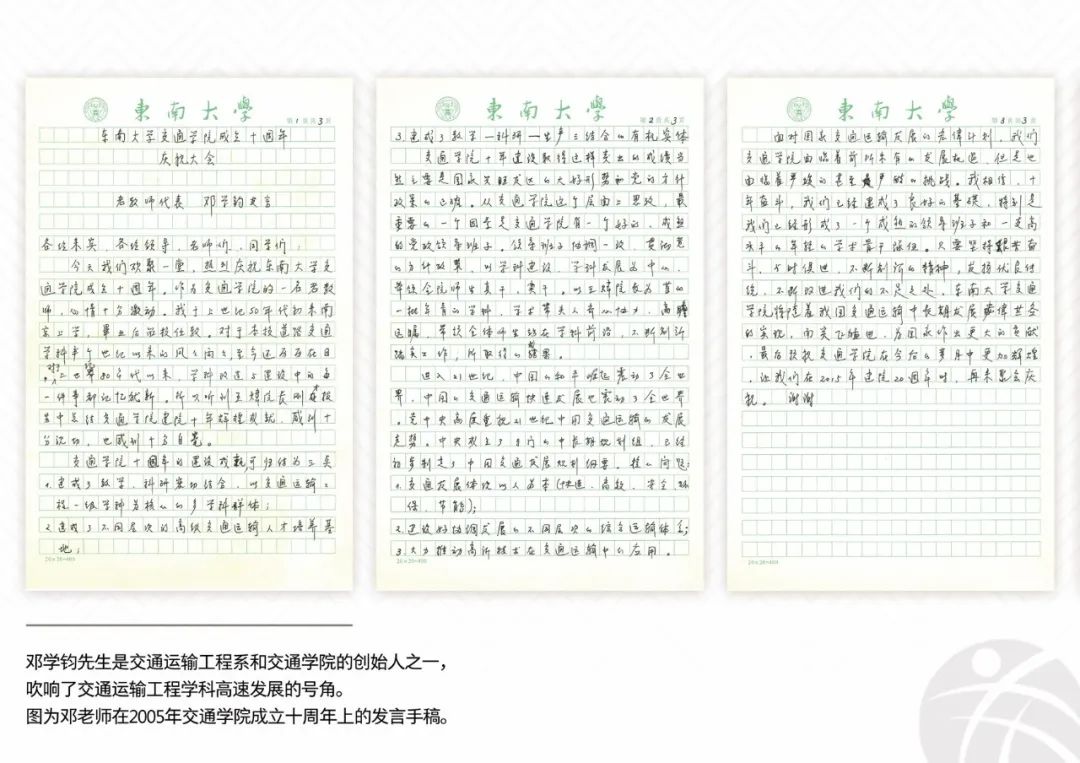 東南大學
第1页共3页
东南大学交通学院成立十周年
庆祝大会
老教师代表 邓学钧发言
各位来宾，各位领导，老师们，同学们：
今天我们欢聚一堂，热烈庆祝东南大学交
通学院成立十周年。作为交通学院的一名老教
师，心情十分激动。我于上世纪50年代初来南
京上学，毕业后留校任教。对于本校道路交通
学科半个世纪以来的风风雨雨，至今还历历在目
，对于上世纪80年代以来，学科改造与建设中的每
一件事都记忆犹新。所以听到王炜院长刚才在报
告中总结交通学院建院十年辉煌成就，感到十
分激动，也感到十分自豪。
交通学院十周年的建设成就可归结为三条
1.建成了教学、科研紧密结合，以交通运输工
程一级学科为核心的多学科群体；
2.建成了不同层次的高级交通运输人才培养基
地；
20×20=400
東南大學
第2页共3页
3.建成了教学—科研—生产三结合的有机实体
交通学院十年建设取得这样突出的成绩当
然主要是国家兴旺发达的大好形势和党的方针
政策的正确。从交通学院这个层面上思考，最
重要的一个因素是交通学院有一个好的、成熟
的党政领导班子。领导班子协调一致，贯彻党
的方针政策，以学科建设、学科发展为中心，
带领全院师生真干，实干。以王炜院长为首的
一批年青的学科、学术带头人奋力拼力，高瞻
远瞩，带领全体师生站在学科前沿，不断创新
踏实工作，所取得的结果。
进入21世纪，中国的和平崛起震动了全世
界，中国的交通运输快速发展也震动了全世界
。党中央高度重视21世纪中国交通运输的发展
态势。中央成立了专门的中长期规划组，已经
初步制定了中国交通发展规划纲要。核心问题：
1.交通发展体现以人为本（快速、高效、安全、环
保、节能）；
2.建设好协调发展的不同层次的综合运输体系；
3.大力推动高新技术在交通运输中的应用。
20×20=400
東南大學
第3页共3页
面对国家交通运输发展的宏伟计划，我们
交通学院面临着前所未有的发展机遇，但是也
面临着严峻的甚至是严酷的挑战。我相信，十
年奋斗，我们已经建成了良好的基础，特别是
我们已经形成了一个成熟的领导班子和一支高
水平的年轻的学术骨干队伍。只要坚持艰苦奋
斗，与时俱进，不断创新的精神，发扬优良传
统，不断改进我们的不足之处，东南大学交通
学院将随着我国交通运输中长期发展宏伟任务
的实现，而实飞腾进，为国家作出更大的贡献
，最后祝愿交通学院在今后的岁月中更加辉煌
，让我们在2015年建院20周年时，再来聚会庆
祝。 谢谢
20×20=400
邓学钧先生是交通运输工程系和交通学院的创始人之一，
吹响了交通运输工程学科高速发展的号角。
图为邓老师在2005年交通学院成立十周年上的发言手稿。